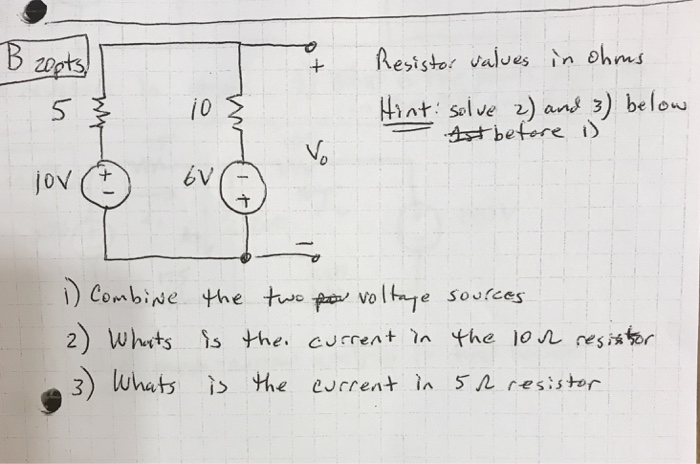 B 20pts
Resistor values in ohms
+
5
10
Hint: solve 2) and 3) below
before 1)
Vo
10V
+
-
6V
-
+
-
1) Combine the two voltage sources
2) Whats is the. current in the 10Ω resistor
3) Whats is the current in 5Ω resistor